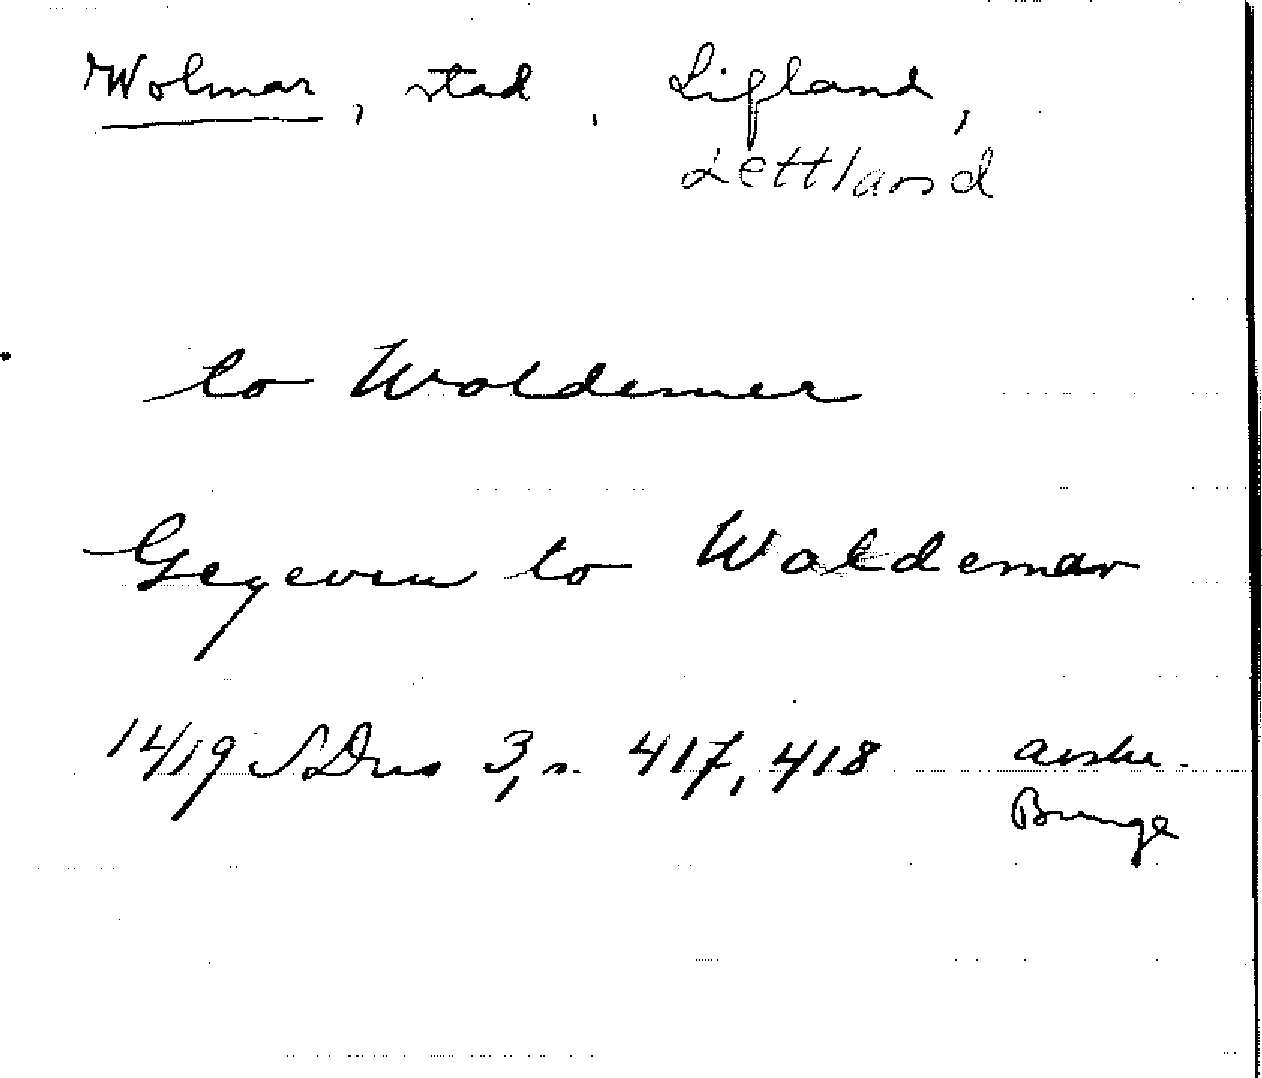 Wolmar, stad, Lifland,
Lettland
to Woldemer
Gegeven to Waldemar
1419 SDns 3, s. 417, 418
Bunge